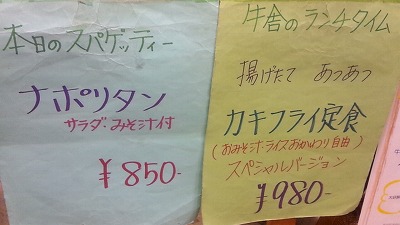 本日のスパゲッティー
ナポリタン
サラダ・みそ汁付
¥850-
牛舎のランチタイム
揚げたて あつあつ
カキフライ定食
(おみそ汁・ライスおかわり自由)
スペシャルバージョン
¥980-